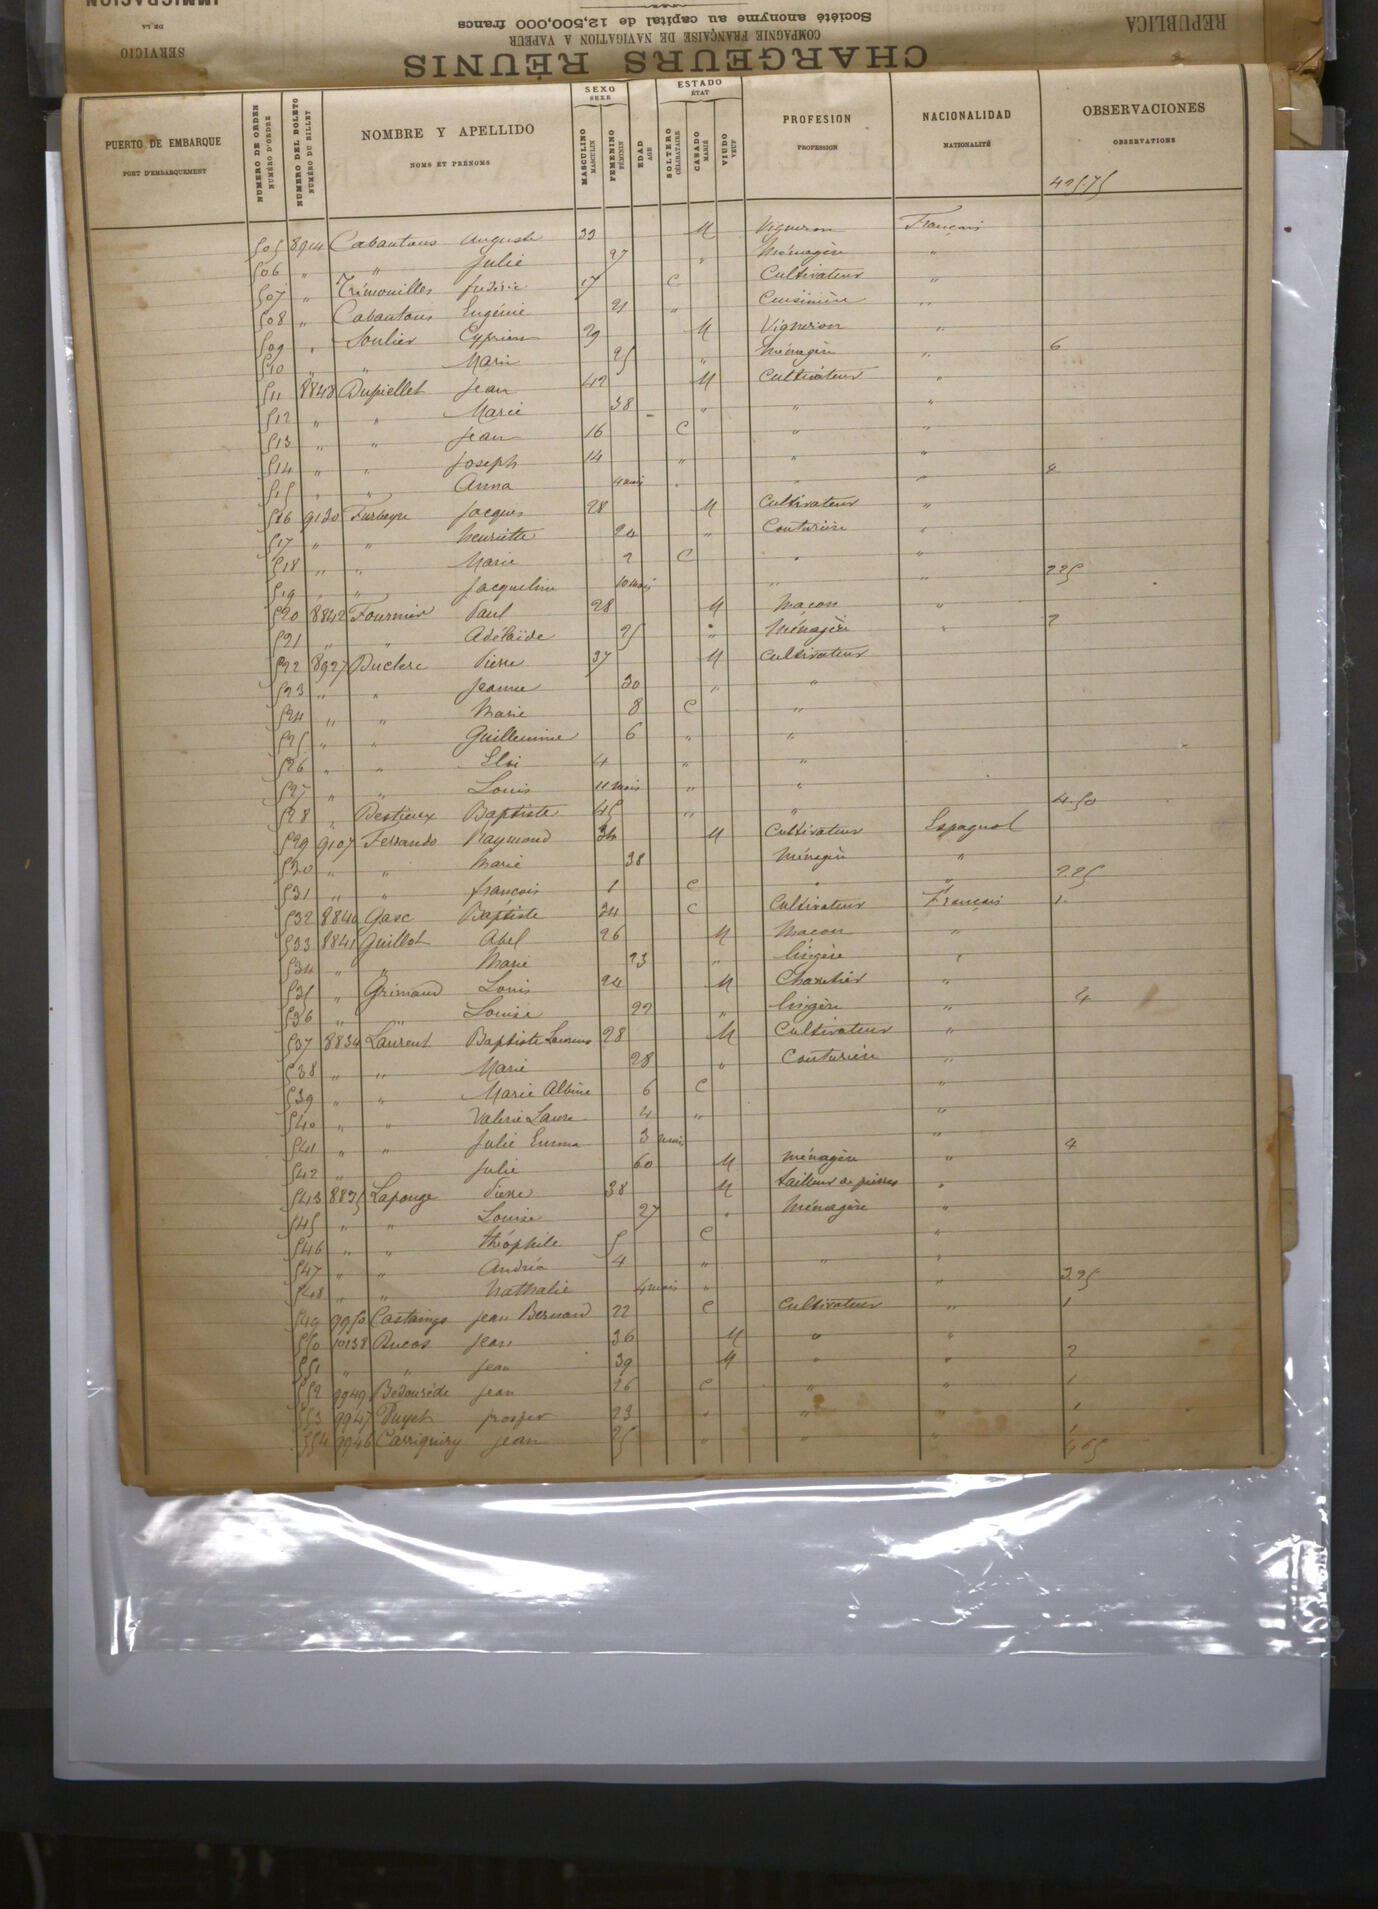 INMIGRACION
DE LA
SERVICIO
Société anonyme au capital de 12,500,000 francs
COMPAGNIE FRANÇAISE DE NAVIGATION A VAPEUR
CHARGEURS RÉUNIS
REPUBLICA
PUERTO DE EMBARQUE PORT D'EMBARQUEMENT NUMERO DE ORDEN NUMÉRO D'ORDRE NUMERO DEL BOLETO NUMÉRO DU BILLET NOMBRE Y APELLIDO NOMS ET PRÉNOMS SEXO SEXE MASCULINO MASCULIN FEMENINO FÉMININ EDAD AGE ESTADO ÉTAT SOLTERO CÉLIBATAIRE CASADO MARIÉ VIUDO VEUF PROFESION PROFESSION NACIONALIDAD NATIONALITÉ OBSERVACIONES OBSERVATIONS
425.75
505 8914 Cabantous Auguste 33 M Vigneron Français
506 " " Julie 27 " Ménagère "
507 " Trémouilles frédéric 17 C Cultivateur "
508 " Cabantous Eugénie 21 " Cuisinière "
509 " Soulier Cyprien 29 M Vigneron "
510 " " Marie 25 " Ménagère " 6
511 8843 Dupiellet Jean 42 M Cultivateur "
512 " " Marie 38 " " "
513 " " Jean 16 C " "
514 " " Joseph 14 " " "
515 " " Anna 4 mois " " "
516 9130 Furbeyre Jacques 28 M Cultivateur "
517 " " henriette 24 " Couturière "
518 " " Marie 2 C " "
519 " " Jacqueline 10 mois " " 2.25
520 8842 Fournier Paul 28 M Maçon "
521 " " Adélaïde 25 " Ménagère " 2
522 8927 Duclerc Pierre 37 M Cultivateur
523 " " Jeanne 30 " "
524 " " Marie 8 C "
525 " " Guillemine 6 " "
526 " " Eloi 4 " "
527 " " Louis 11 mois " "
528 " Bestieux Baptiste 45 " " 4.50
529 9107 Ferrando Raymond 34 M Cultivateur Espagnol
530 " " Marie 38 Ménagère "
531 " " françois 1 C " " 2.25
532 8840 Gasc Baptiste 34 C Cultivateur Français 1
533 8841 Guillot Abel 26 M Maçon "
534 " " Marie 23 " lingère "
535 " Grimaud Louis 24 M Charretier "
536 " " Louise 22 " lingère " 4
537 8834 Laurent Baptiste 28 M Cultivateur "
538 " " Marie 28 " Couturière "
539 " " Marie Albine 6 C "
540 " " Valerie Laure 4 " "
541 " " Julie Emma 3 mois "
542 " Julie 60 M Ménagère " 4
543 8835 Lapouge Pierre 38 M tailleur de pierres "
545 " " Louise 27 " Ménagère "
546 " " théophile 5 C "
547 " " Andréa 4 " " "
548 " " Nathalie 4 mois " " 3.25
549 9950 Castaings Jean Bernard 22 C Cultivateur " 1
550 10138 Ducos Jean 36 M " "
551 " " Jean 39 M " " 2
552 9949 Bedourède Jean 26 C " " 1
553 9947 Puyet prosper 23 " " " 1
554 9946 Carriquiry Jean 25 " " " 1